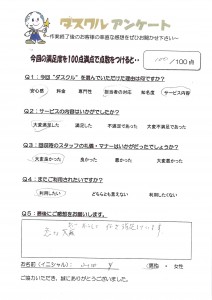 ダスクル アンケート
～作業終了後のお客様の率直な感想をぜひお聞かせ下さい～
今回の満足度を100点満点で点数をつけると…
100/100点
Q1：今回"ダスクル"を選んでいただけた理由は何ですか？
安心感 料金 専門性 担当者の対応 知名度 サービス内容
Q2：サービスの内容はいかがでしたか？
大変満足した 満足した 不満足であった 大変不満足であった
Q3：担当者のスタッフの礼儀・マナーはいかがだったでしょうか？
大変良かった 良かった 悪かった 大変悪かった
Q4：またご利用されたいですか？
利用したい どちらとも言えない 利用したくない
Q5：最後にご感想をお願いします。
お名前（イニシャル）： 男性・女性
ご協力いただき、誠にありがとうございました。